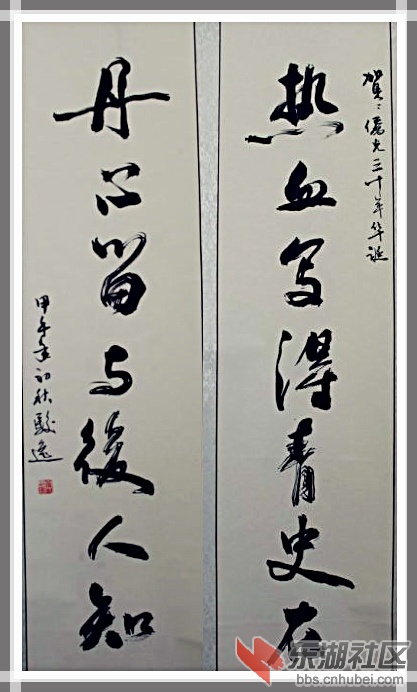 賀 三十年华诞
热血写得青史在
丹心留与後人知
甲午年初秋骏逸
东湖社区
bbs.cnhubei.com